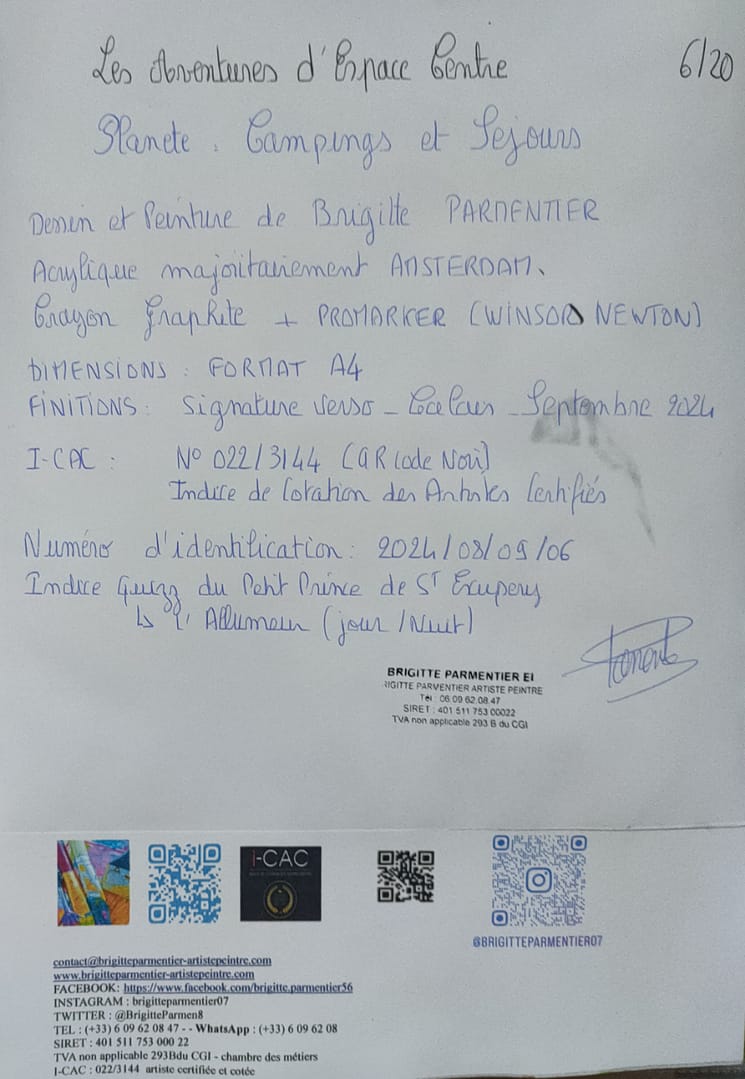 Les Aventures d'Espace Centre
6/20
Planète : Campings et Séjours
Dessin et Peinture de Brigitte PARMENTIER
Acrylique majoritairement AMSTERDAM.
Crayon graphite + PROMARKER (WINSOR NEWTON)
DIMENSIONS : FORMAT A4
FINITIONS : Signature verso - Septembre 2024
I-CAC : N° 022/3144 (QR code Noir)
Indice de Cotation des Artistes Certifiés
Numéro d'identification : 2024/08/09/06
Indice Quizz du Petit Prince de St Exupery
↳ l'Allumeur (jour/Nuit)
BRIGITTE PARMENTIER EI
RIGITTE PARMENTIER ARTISTE PEINTRE
Tél : 06 09 62.08.47
SIRET : 401 511 753 00022
TVA non applicable 293 B du CGI
i-CAC
@BRIGITTEPARMENTIER07
contact@brigitteparmentier-artistepeintre.com
www.brigitteparmentier-artistepeintre.com
FACEBOOK: https://www.facebook.com/brigitte.parmentier56
INSTAGRAM : brigitteparmentier07
TWITTER : @BrigitteParmen8
TEL : (+33) 6 09 62 08 47 - - WhatsApp : (+33) 6 09 62 08
SIRET : 401 511 753 000 22
TVA non applicable 293Bdu CGI - chambre des métiers
I-CAC : 022/3144 artiste certifiée et cotée